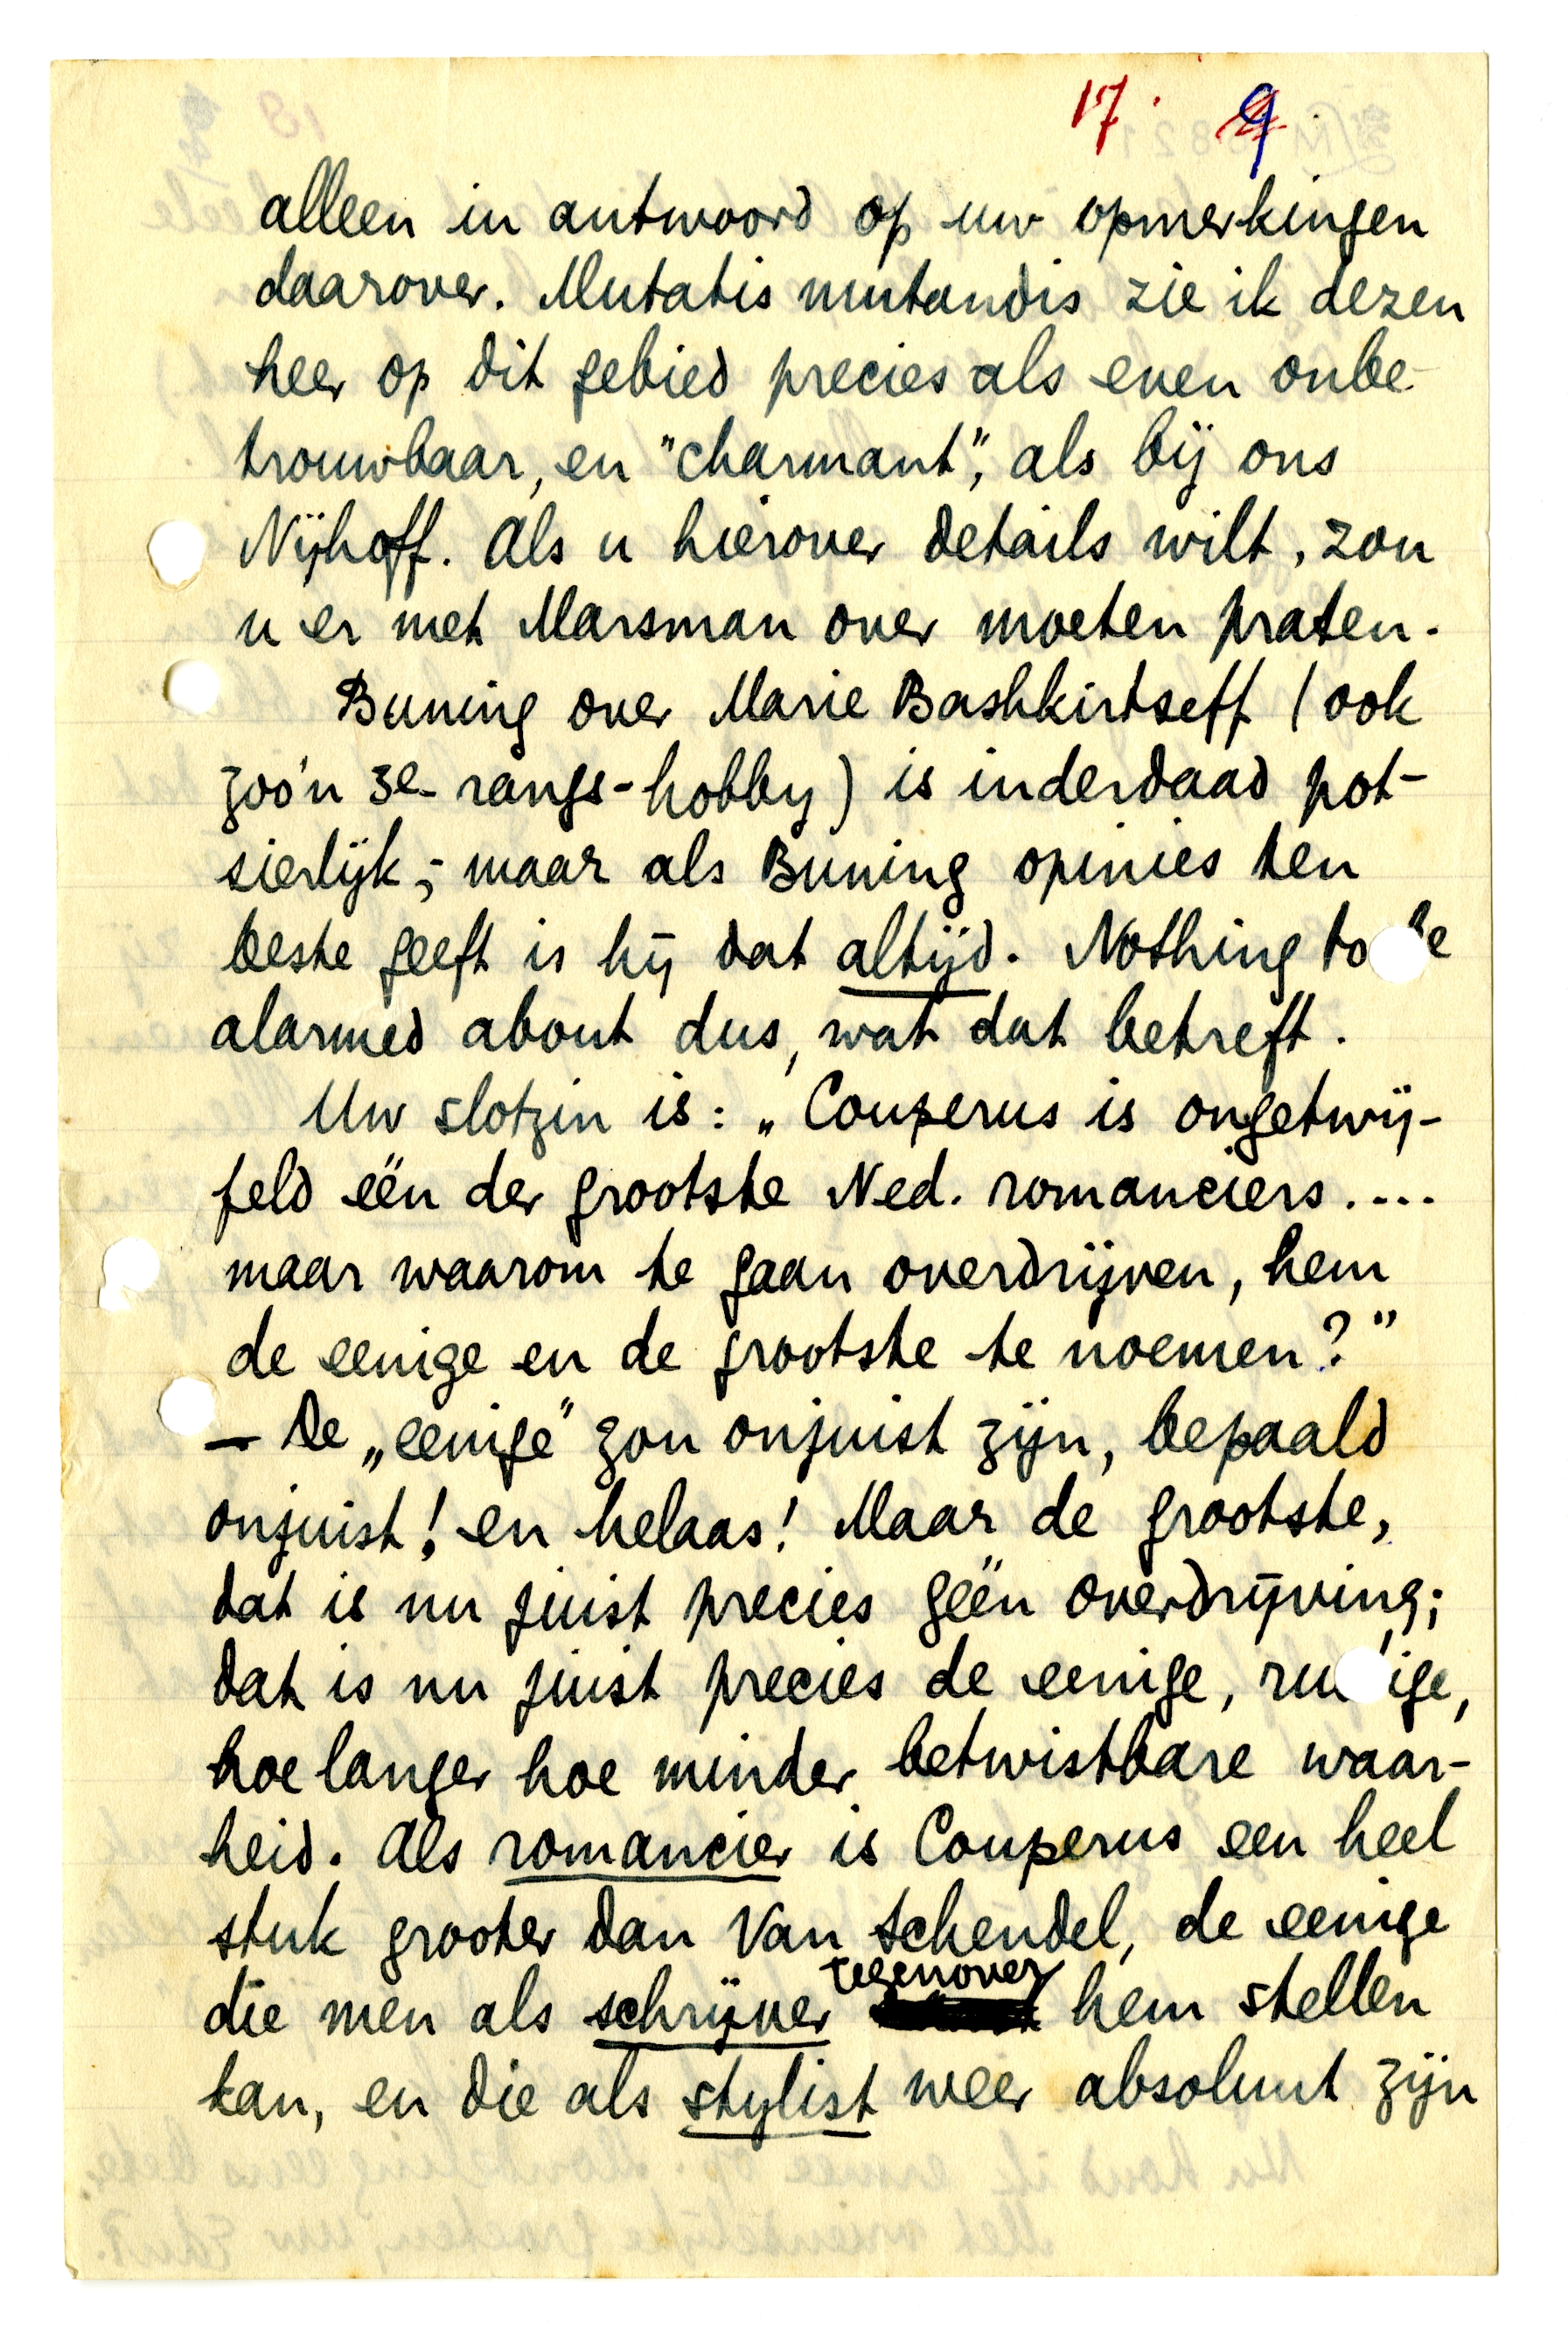 17. 9.
alleen in antwoord op uw opmerkingen
daarover. Mutatis mutandis zie ik dezen
heer op dit gebied precies als even onbe-
trouwbaar, en "charmant", als bij ons
Nijhoff. Als u hierover details wilt, zou
u er met Marsman over moeten praten.
Buning over Marie Bashkirtseff (ook
zoo'n 3e rangs-hobby) is inderdaad pot-
sierlijk; - maar als Buning opinies ten
beste geeft is hij dat altijd. Nothing to e
alarmed about dus, wat dat betreft.
Uw slotzin is: „Couperus is ongetwij-
feld eën der grootste Ned. romanciers....
maar waarom te gaan overdrijven, hem
de eenige en de grootste te noemen?"
— De „eenige" zou onjuist zijn, bepaald
onjuist! en helaas! Maar de grootste,
dat is nu juist precies geën overdrijving;
dat is nu juist precies de eenige, ru ige,
hoe langer hoe minder betwistbare waar-
heid. Als romancier is Couperus een heel
stuk grooter dan Van Schendel, de eenige
die men als schrijver tegenover hem stellen
kan, en die als stylist weer absoluut zijn